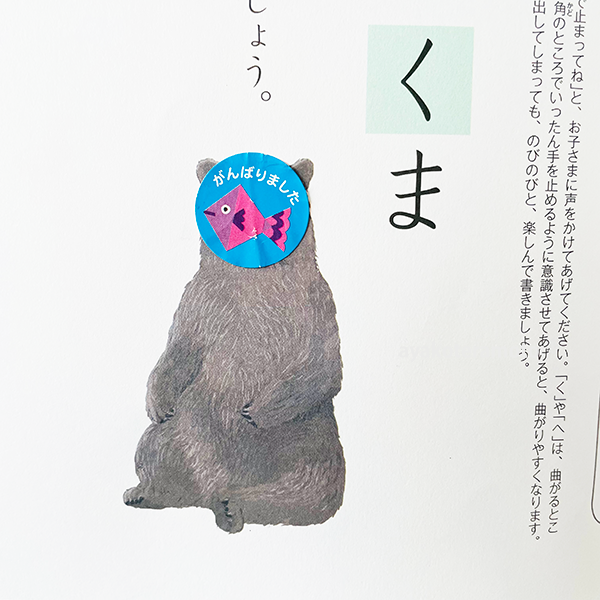 で止まってね」と、お子さまに声をかけてあげてください。「く」や「へ」は、曲がるとこ
角のところでいったん手を止めるように意識させてあげると、曲がりやすくなります。
かど
出してしまっても、のびのびと、楽しんで書きましょう。
くま
しょう。
がんばりました